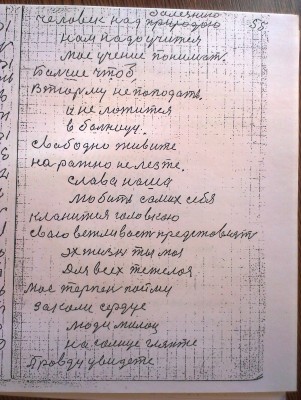 болезнею
55.
человек над природою
нам надо учится
мое учение понимать.
Болше чтоб,
в тюрму не поподать.
и не ложится
в болницу.
Свободно живите
на ражно не лезте.
слава наша
любить самих себя
клонится головгою
Сваю вежливость предстовлять
эх жизнь ты моя
для всех тежелоя
мое терпен пойму
закали сердце
люди милоц
на солнце гляньте
Правду увидете